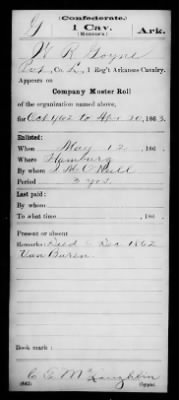 (Confederate.)
G 1 Cav. Ark.
(Monroe's)
W R Goyne
Pvt, Co. L, 1 Reg't Arkansas Cavalry.
Appears on
Company Muster Roll
of the organization named above,
for Oct 1862 to Apr 30, 1863.
Enlisted:
When May 12, 186 .
Where Hamburg
By whom
Period 3 yrs.
Last paid:
By whom
To what time , 186 .
Present or absent
Remarks: Died 6 Dec 1862
Van Buren
Book mark:
C E McLaughlin
(642) Copyist.